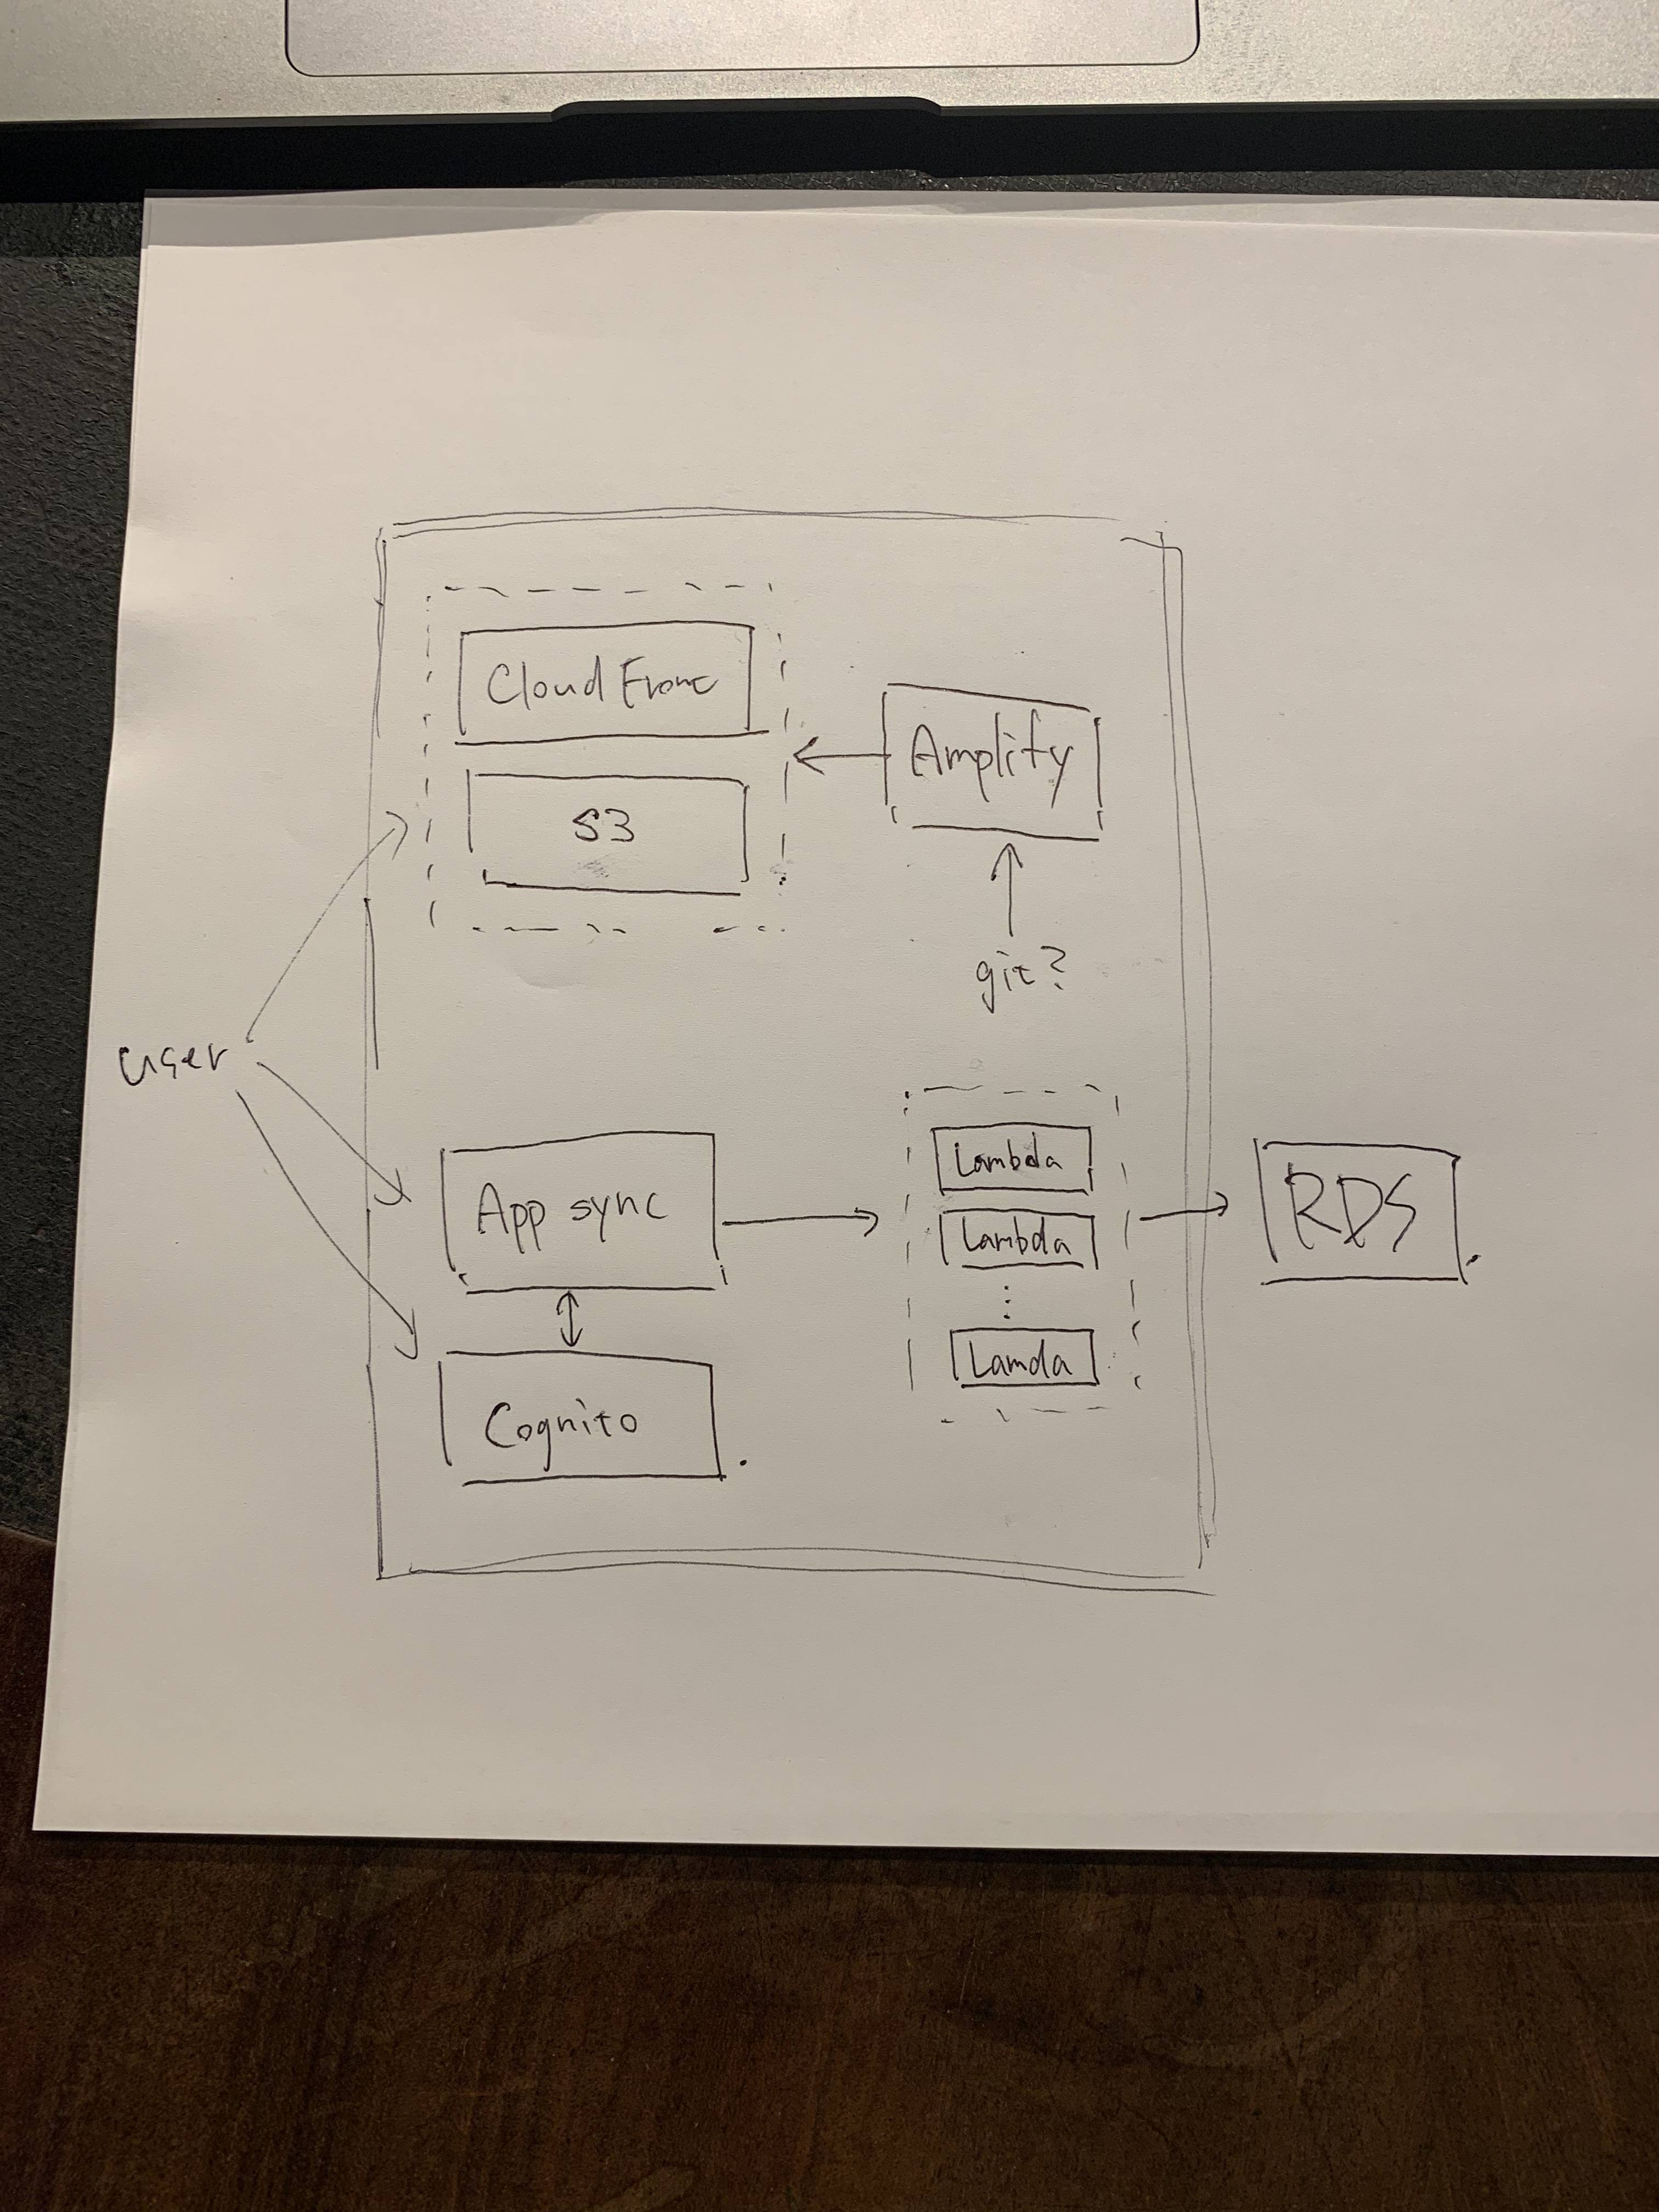 Cloud Front
S3
Amplify
git?
user
App sync
Cognito
Lambda
Lambda
Lamda
RDS